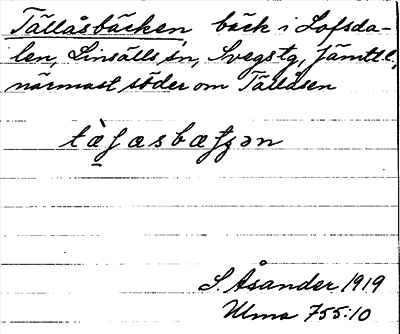 Tällåsbäcken, bäck i Lofsda-
len, Linsälls sn, Svegs tg, Jämtl. l.,
närmast söder om Tällåsen
S. Åsander 1919
Ulma 755:10